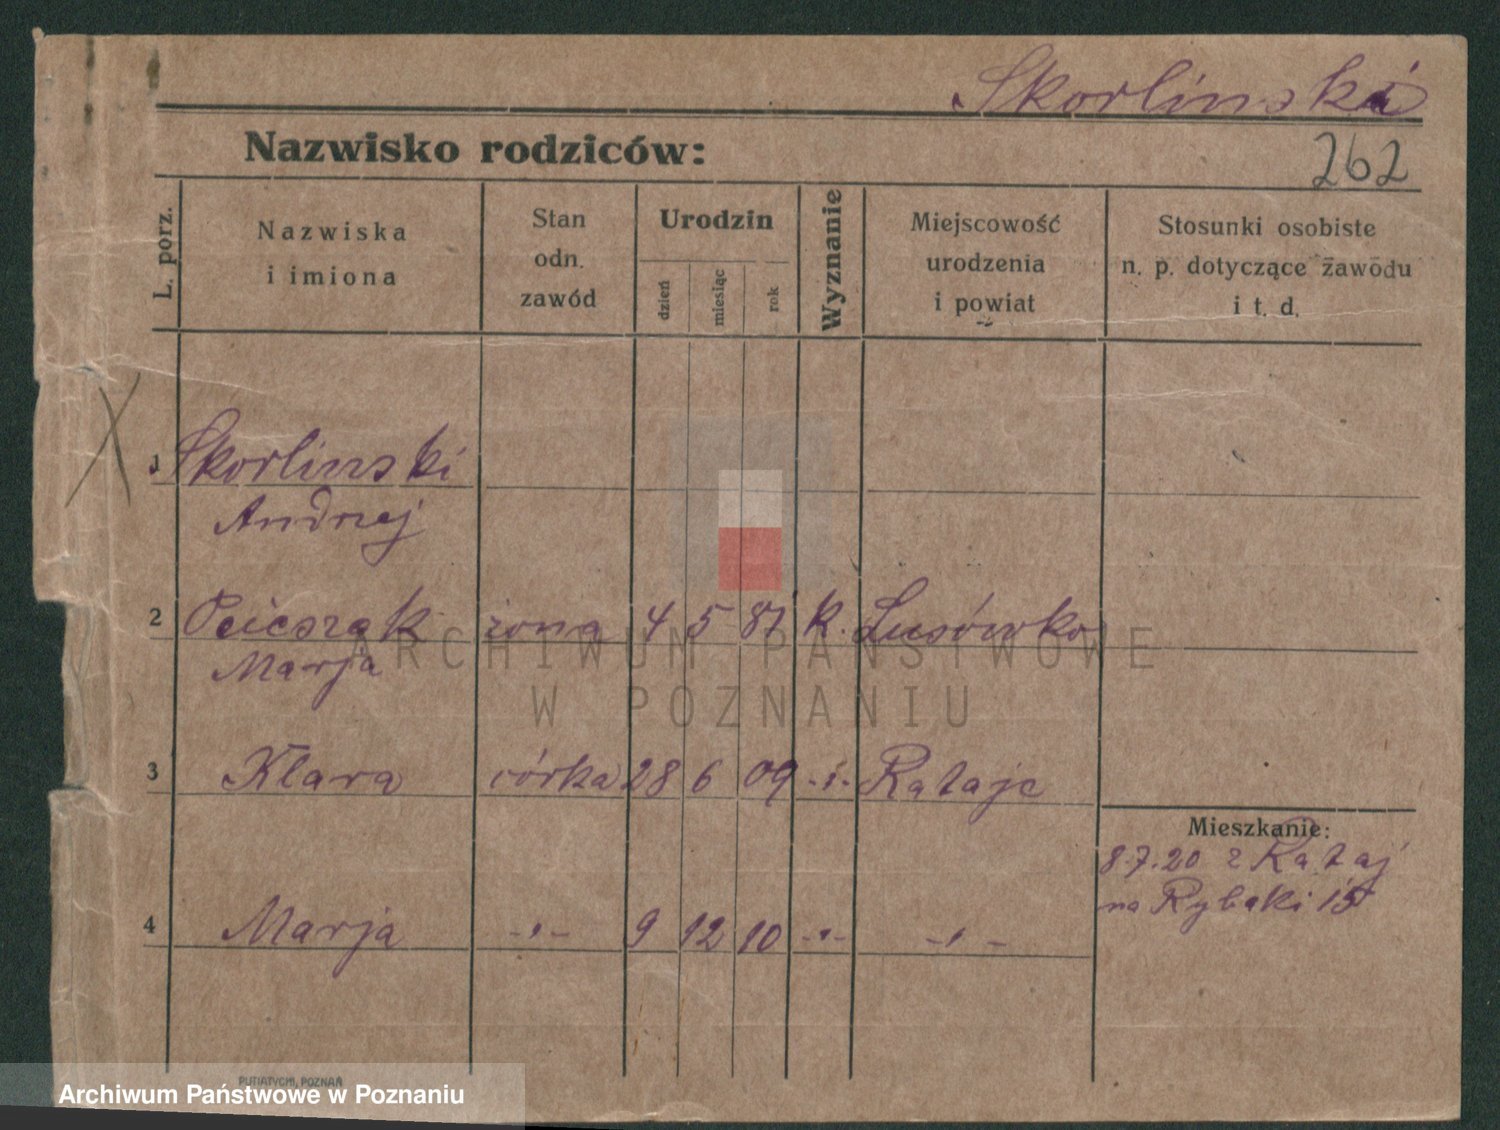 Skorlinski
Nazwisko rodziców:
262
L. porz.
Nazwiska
i imiona
Stan
odn.
zawód
Urodzin
dzień
miesiąc
rok
Wyznanie
Miejscowość
urodzenia
i powiat
Stosunki osobiste
n. p. dotyczące zawodu
i t. d.
1 Skorlinski
Andrzej
2 żona 4 5 87 k. Lusówko
Marja
3 Klara córka 28 6 09 -"- Rataje
4 Marja -"- 9 12 10 -"- -"-
Mieszkanie:
8.7.20 z Rataj
na Rybaki 15
ARCHIWUM PAŃSTWOWE
W POZNANIU
PUTIATYCKI, POZNAŃ
Archiwum Państwowe w Poznaniu